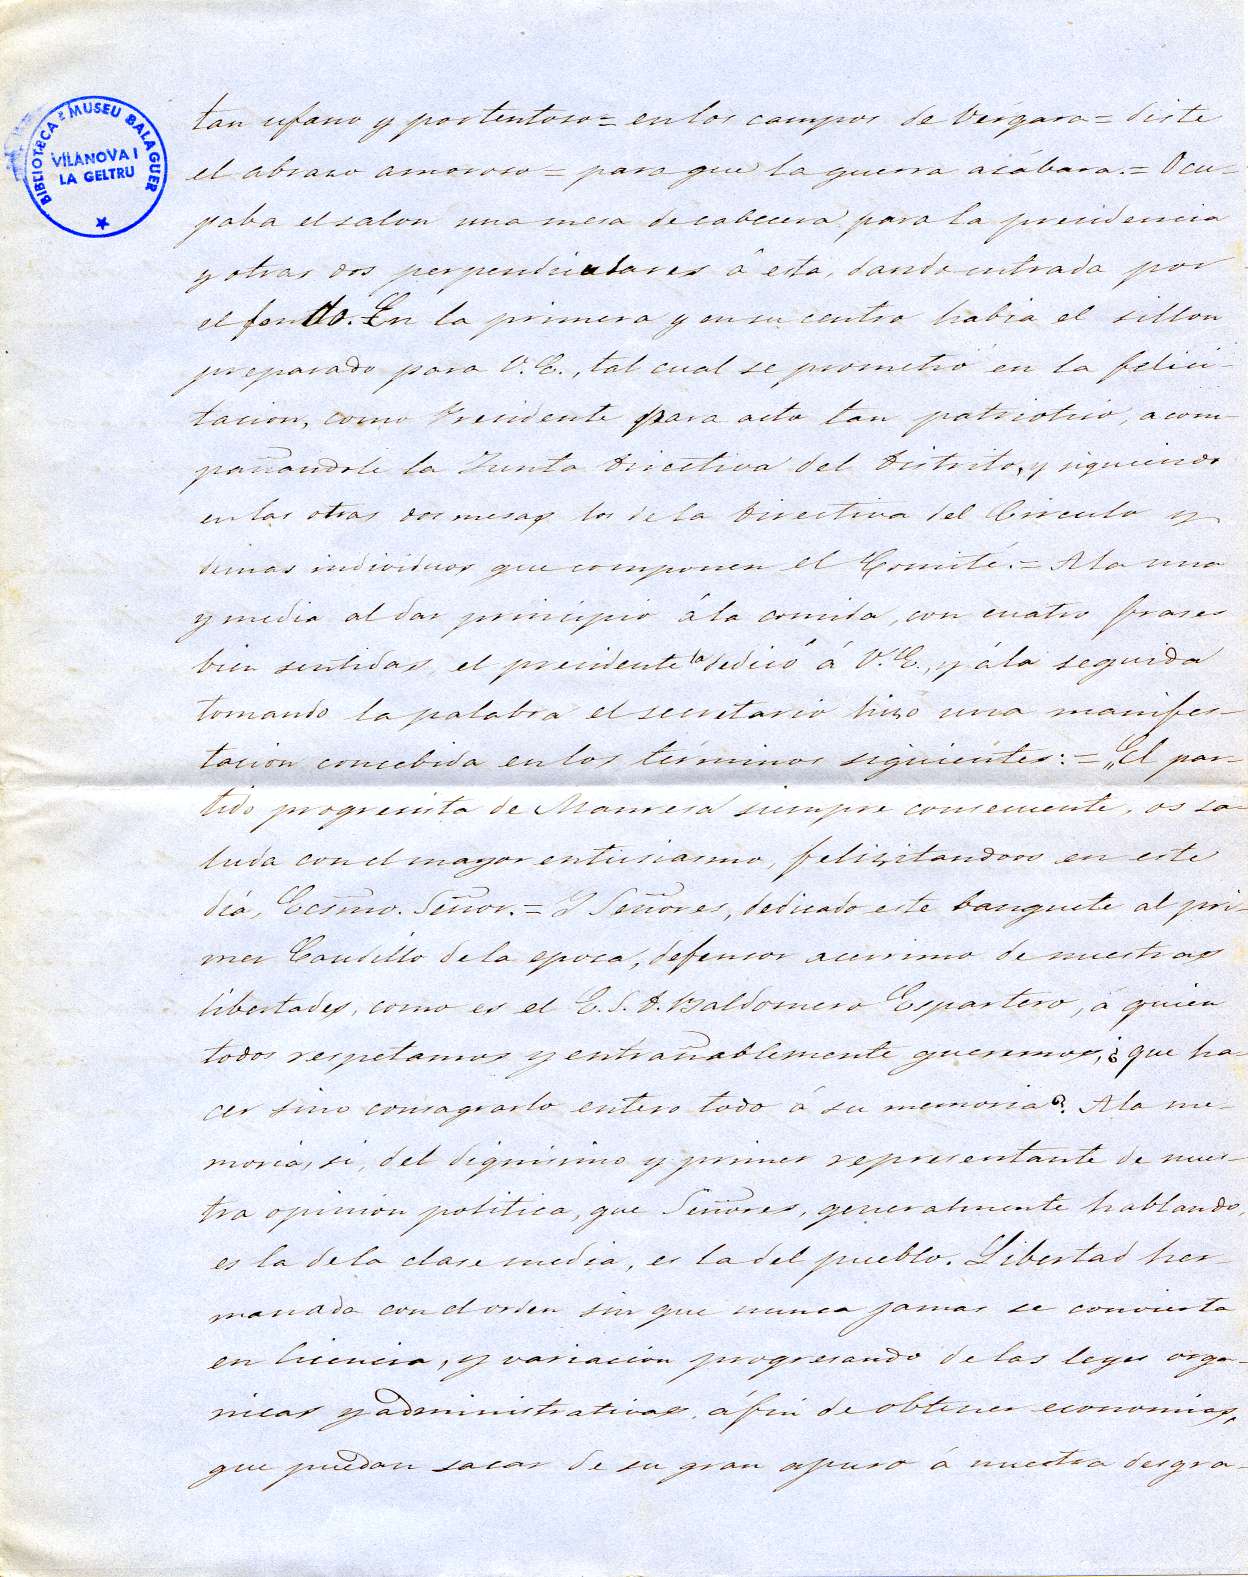 BIBLIOTECA MUSEU BALAGUER
VILANOVA I
LA GELTRU
tan ufano y portentoso = en los campos de Vérgara = diste
el abrazo amoroso = para que la guerra acábara. = Ocu-
paba el salon una mesa de cabecera para la presidencia
y otras dos perpendiculares á esta, dando entrada por
el fondo. En la primera y en su centro habia el sillon
preparado para V. E., tal cual se prometió en la felici-
tacion, como Presidente para acto tan patriotico, acom-
pañandole la Junta Directiva del Distrito, y siguiendo
en las otras dos mesas los de la Directiva del Circulo y
demas individuos que componen el Comité. = A la una
y media al dar principio á la comida, con cuatro frases
bien sentidas, el presidente la dedicó á V. E., y á la seguida
tomando la palabra el secretario hizo una manifes-
tacion concebida en los términos siguientes: = „El par-
tido progresista de Manresa siempre consecuente, os sa-
luda con el mayor entusiasmo, felizitandoos en este
dia, Ecsmo. Señor. = Y Señores, dedicado este banquete al pri-
mer Caudillo de la epoca, defensor acerrimo de nuestras
libertades, como es el E. S. D. Baldomero Espartero, á quien
todos respetamos y entrañablemente queremos, ¿que ha-
cer sino consagrarlo entero todo á su memoria? A la me-
moria, si, del dignisimo y primer representante de nues-
tra opinion politica, que Señores, generalmente hablando,
es la de la clase media, es la del pueblo. Libertad her-
manada con el orden sin que nunca jamas se convierta
en licencia, y variacion progresando de las leyes orga-
nicas y administrativas, á fin de obtener economias,
que puedan sacar de su gran apuro á nuestra desgra-